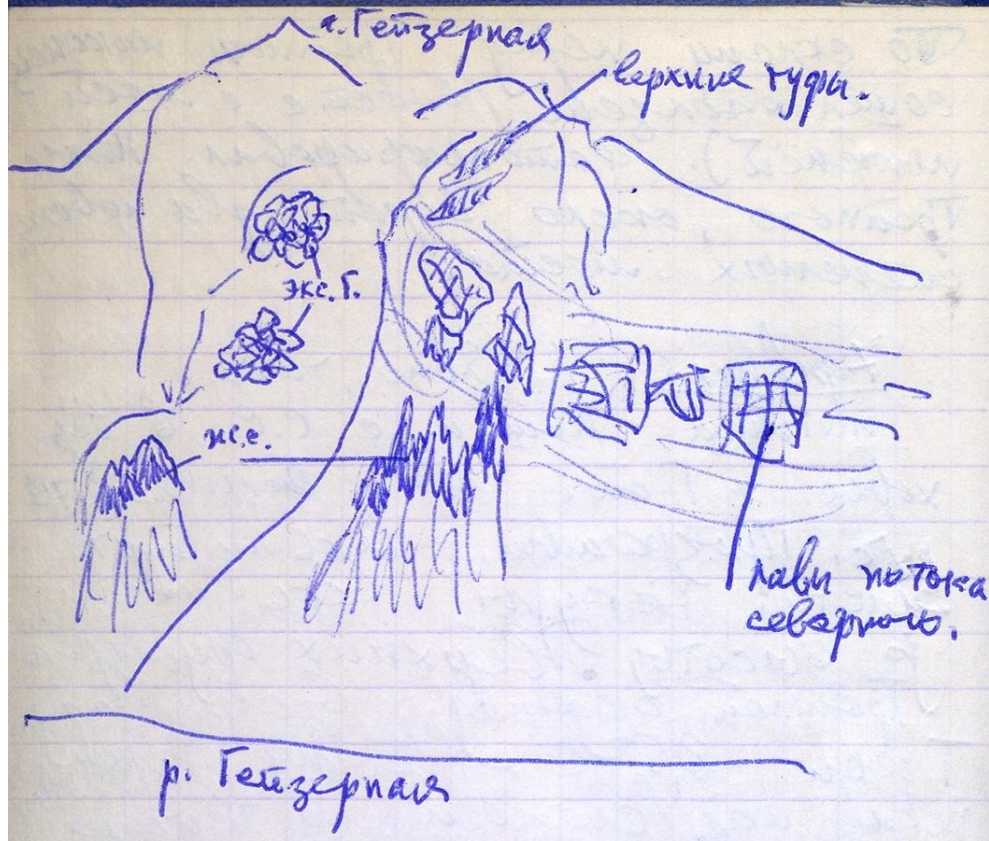 г. Гейзерная
верхние туфы.
экс. Г.
ж.е.
лавы потока
северного.
р. Гейзерная